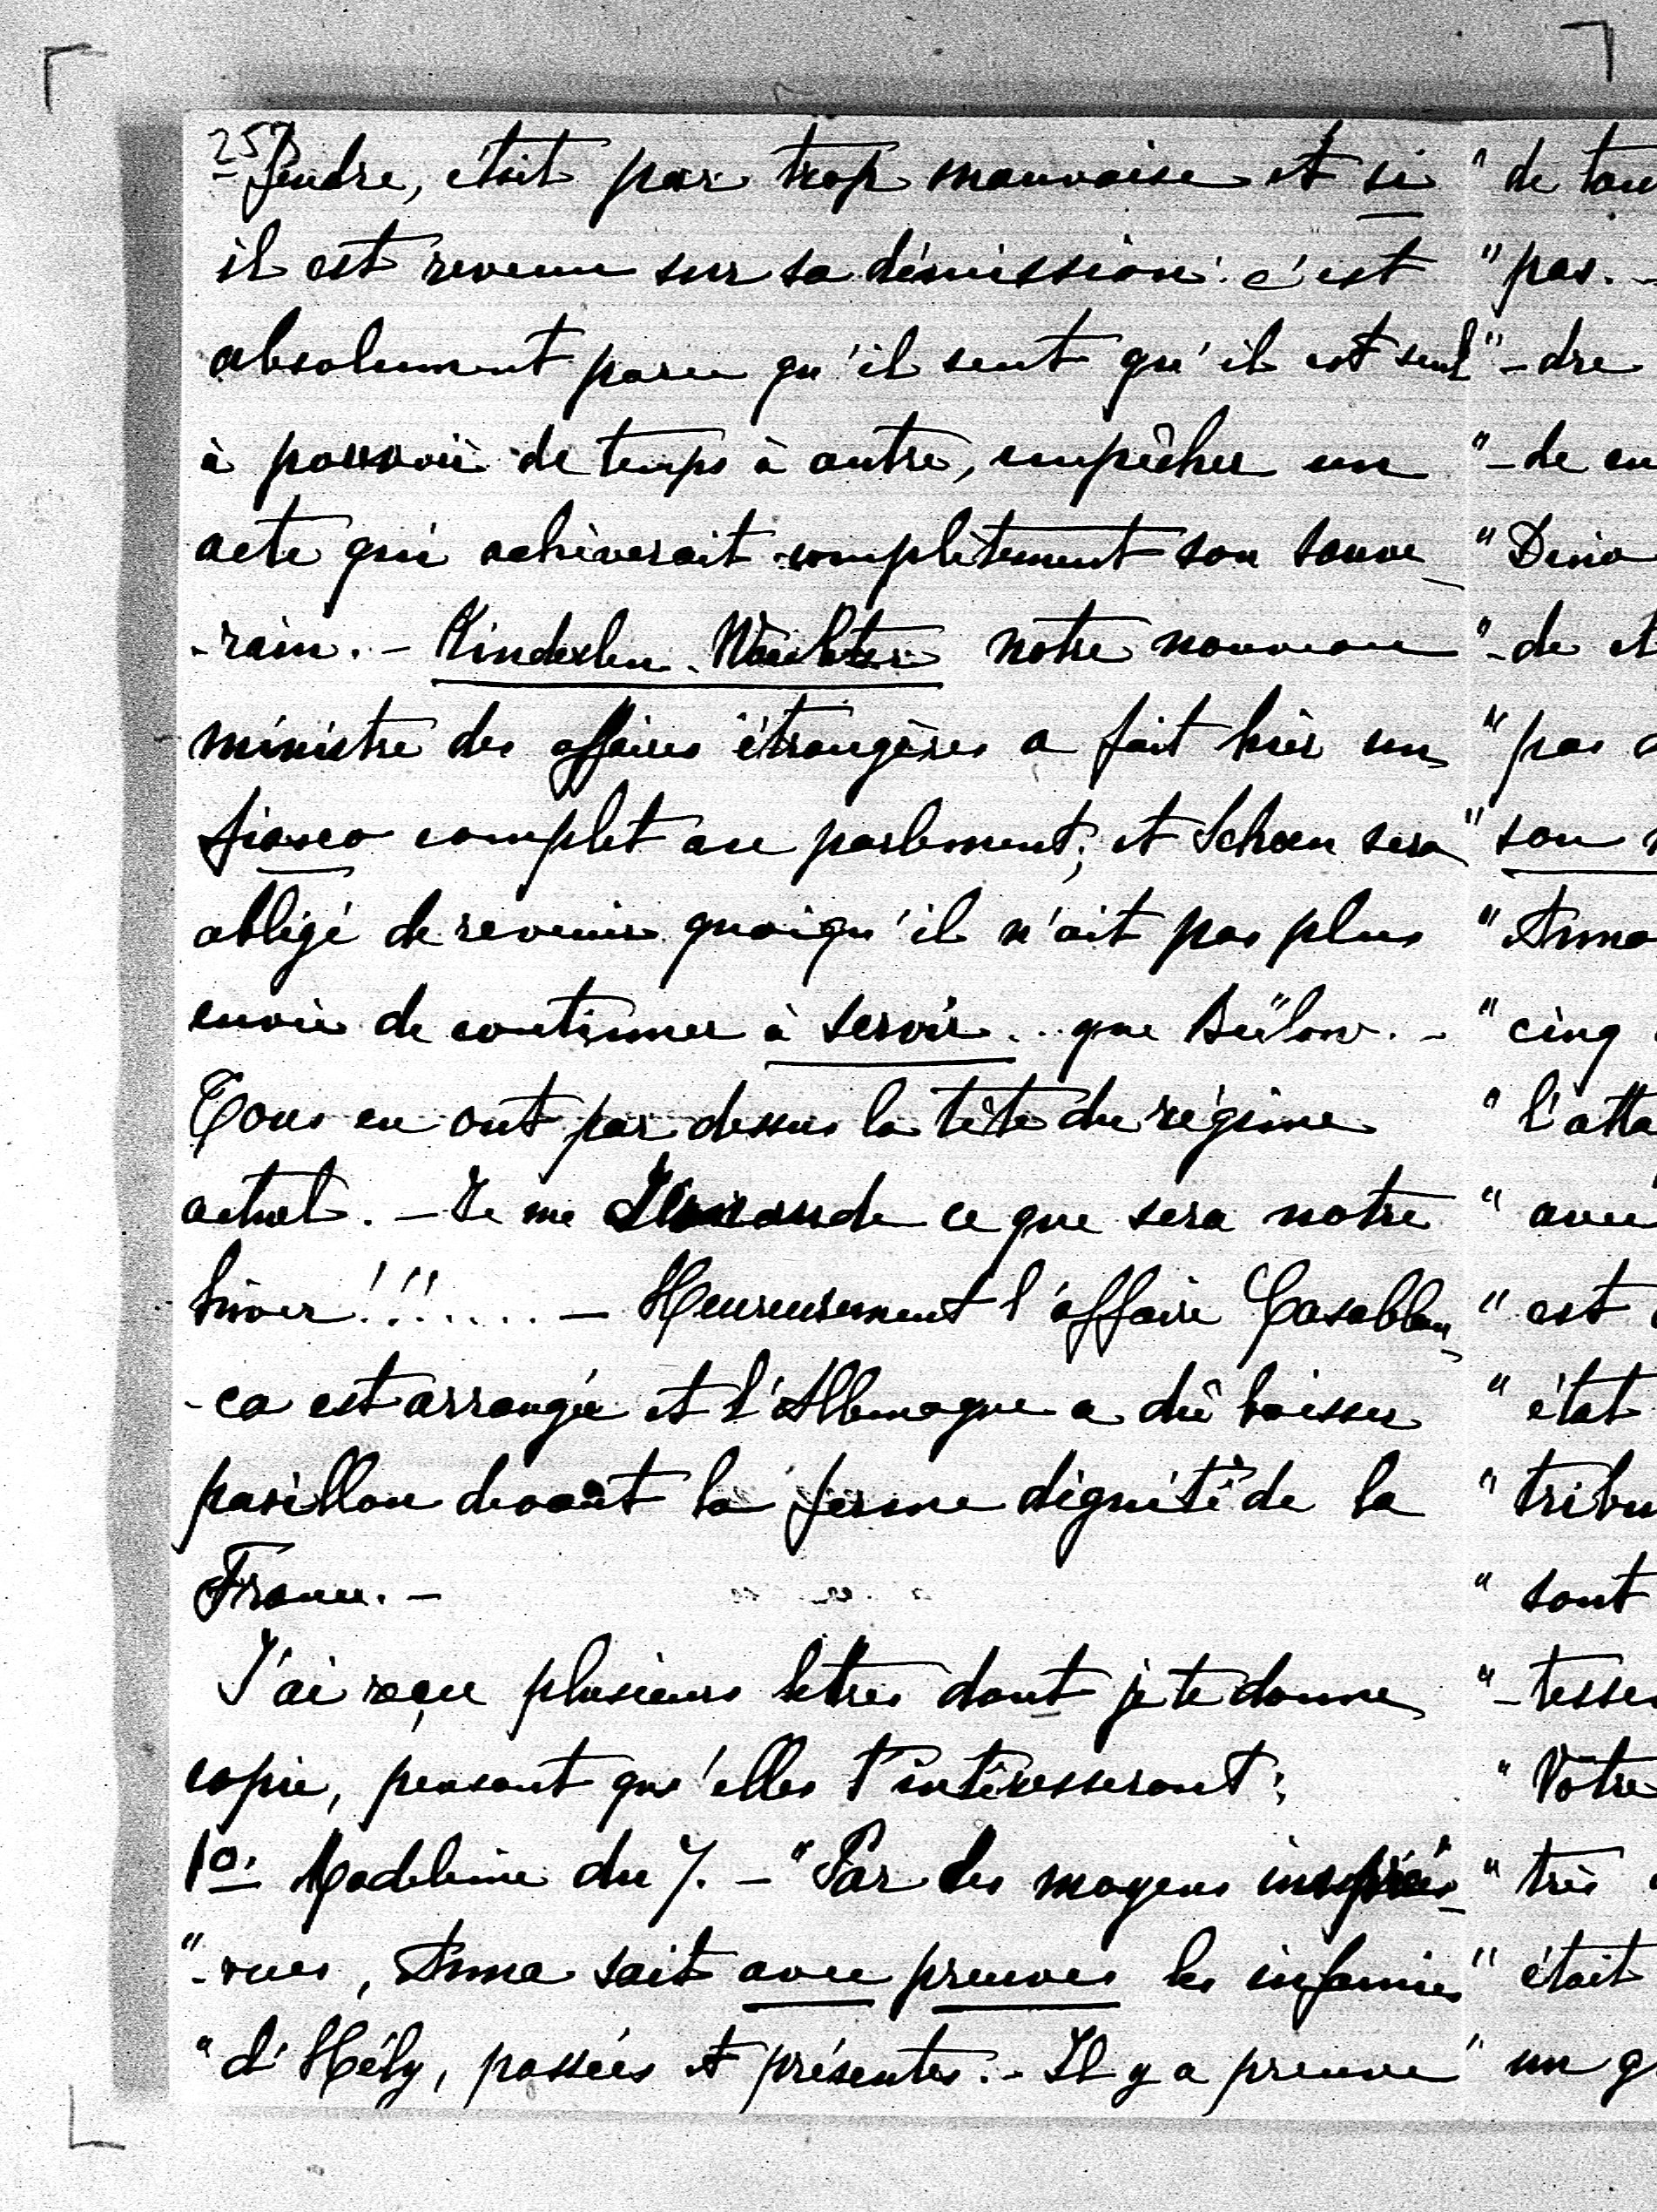 -fendre, était par trop mauvaise et si
il est revenu sur sa démission: c'est
absolument parce qu'il sent qu'il est seul
à pouvoir de temps à autre, empêcher un
acte qui achèverait complètement son souve-
-rain. - Kinderlen-Wächter notre nouveau
ministre des affaires étrangères a fait hier un
fiasco complet au parlement; et Schoen sera
obligé de revenir quoiqu'il n'ait pas plus
envie de continuer à servir... que Bülow. -
Tous en ont par dessus la tête du régime
actuel. - Je me demande ce que sera notre
hiver!!!...... - Heureusement l'affaire Casablan-
-ca est arrangée et l'Allemagne a dû baisser
pavillon devant la ferme dignité de la
France. -
J'ai reçu plusieurs lettres dont je te donne
copie, pensant qu'elles t'intéresseront:
1o. Madeleine du 7. - "Par des moyens imprés-
"-vues, Anna sait avec preuves les infamies
"d'Hély, passées et présentes. - Il y a preuve
"de tou
"pas. -
"-dre
"-de en
"-de et
"pas
"son
"Anna
"cinq
"l'atta
"avec
"est
"état
"tribu
"sont
"-tesse
"Votre
"très
"était
"un g